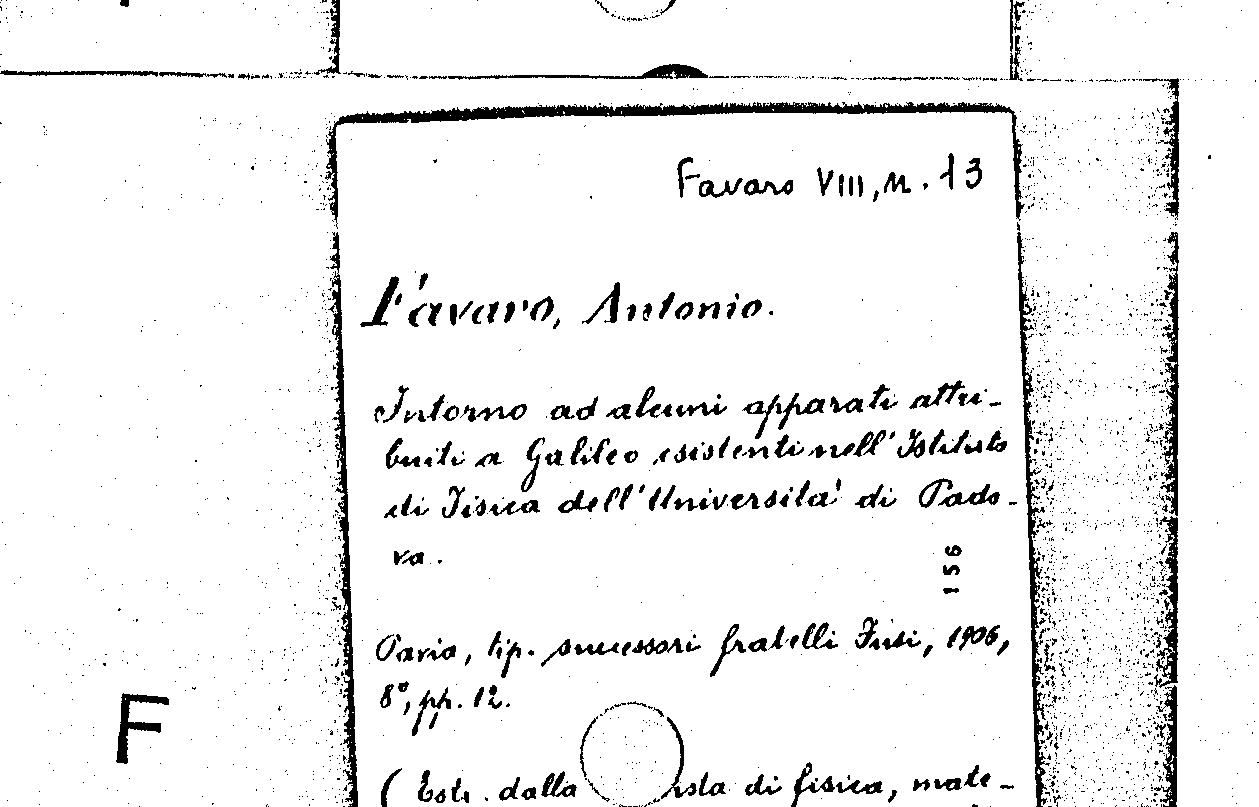 Favaro VIII, n. 13
Favaro, Antonio.
Intorno ad alcuni apparati attri-
buiti a Galileo esistenti nell'Istituto
di Fisica dell'Università di Pado-
va.
156
Pavia, tip. successori fratelli Fusi, 1906,
8°, pp. 12.
F
( Estr. dalla ista di fisica, mate-